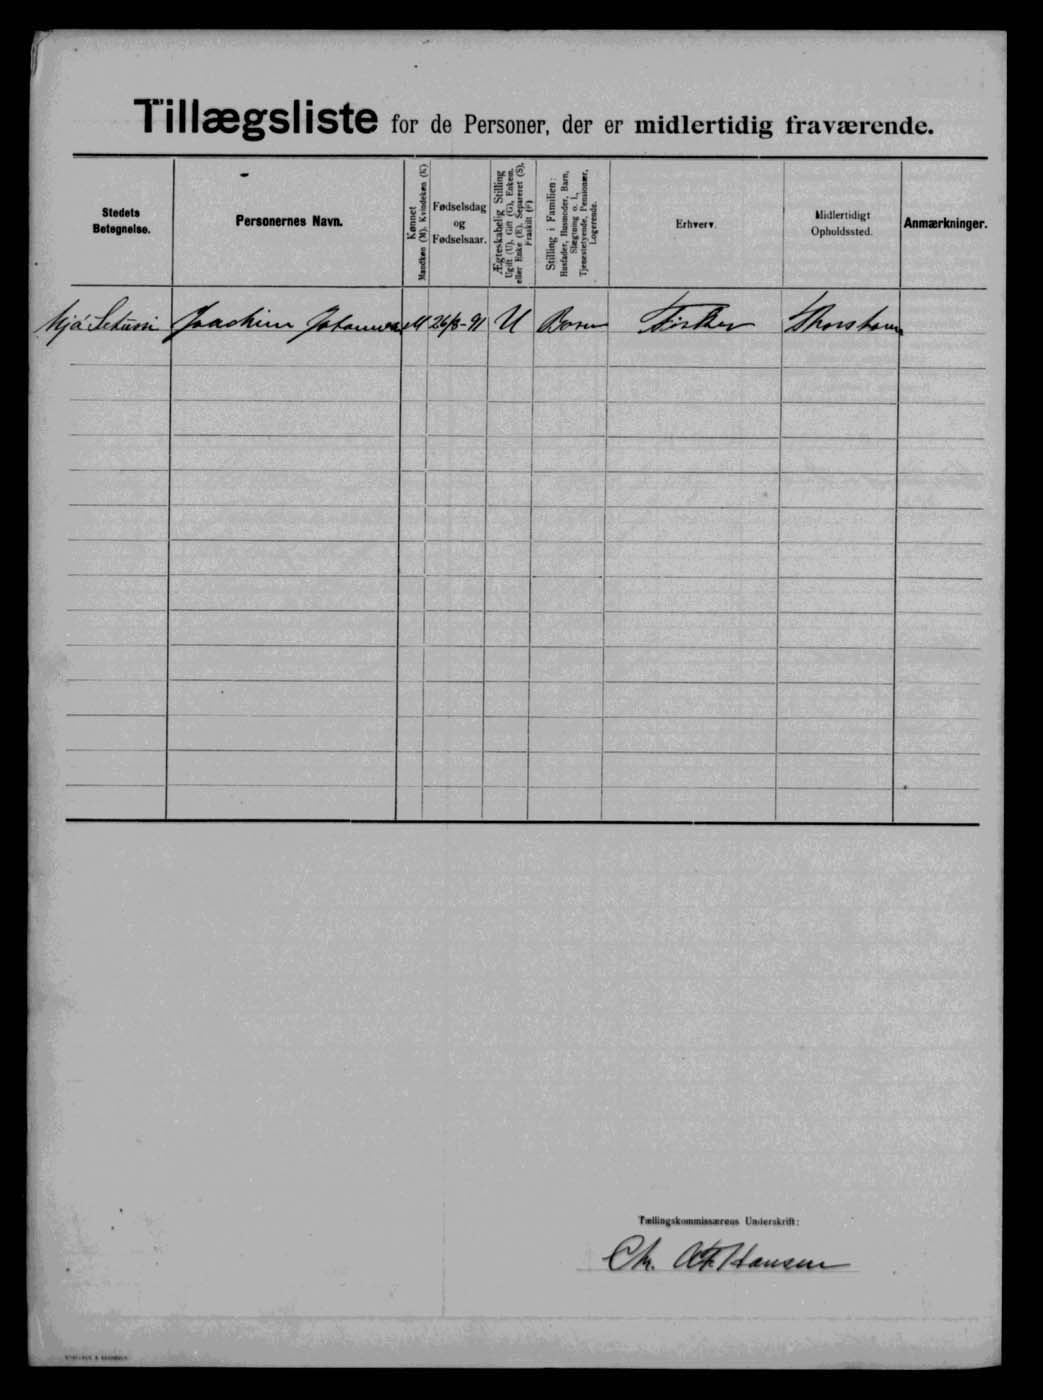 Tillægsliste for de Personer, der er midlertidig fraværende.
Stedets Betegnelse.
Personernes Navn.
Kønnet
Mandkøn (M). Kvindekøn (K)
Fødselsdag
og
Fødselsaar.
Ægteskabelig Stilling
Ugift (U), Gift (G), Enkem.
eller Enke (E), Separeret (S),
Fraskilt (F)
Stilling i Familien:
Husfader, Husmoder, Barn,
Slægtning o. l.,
Tjenestetyende, Pensionær,
Logerende.
Erhverv.
Midlertidigt
Opholdssted.
Anmærkninger.
Joachim M 26/8-91 U Barn Fisker Thorshavn
Tællingskommissærens Underskrift:
Chr. Hansen